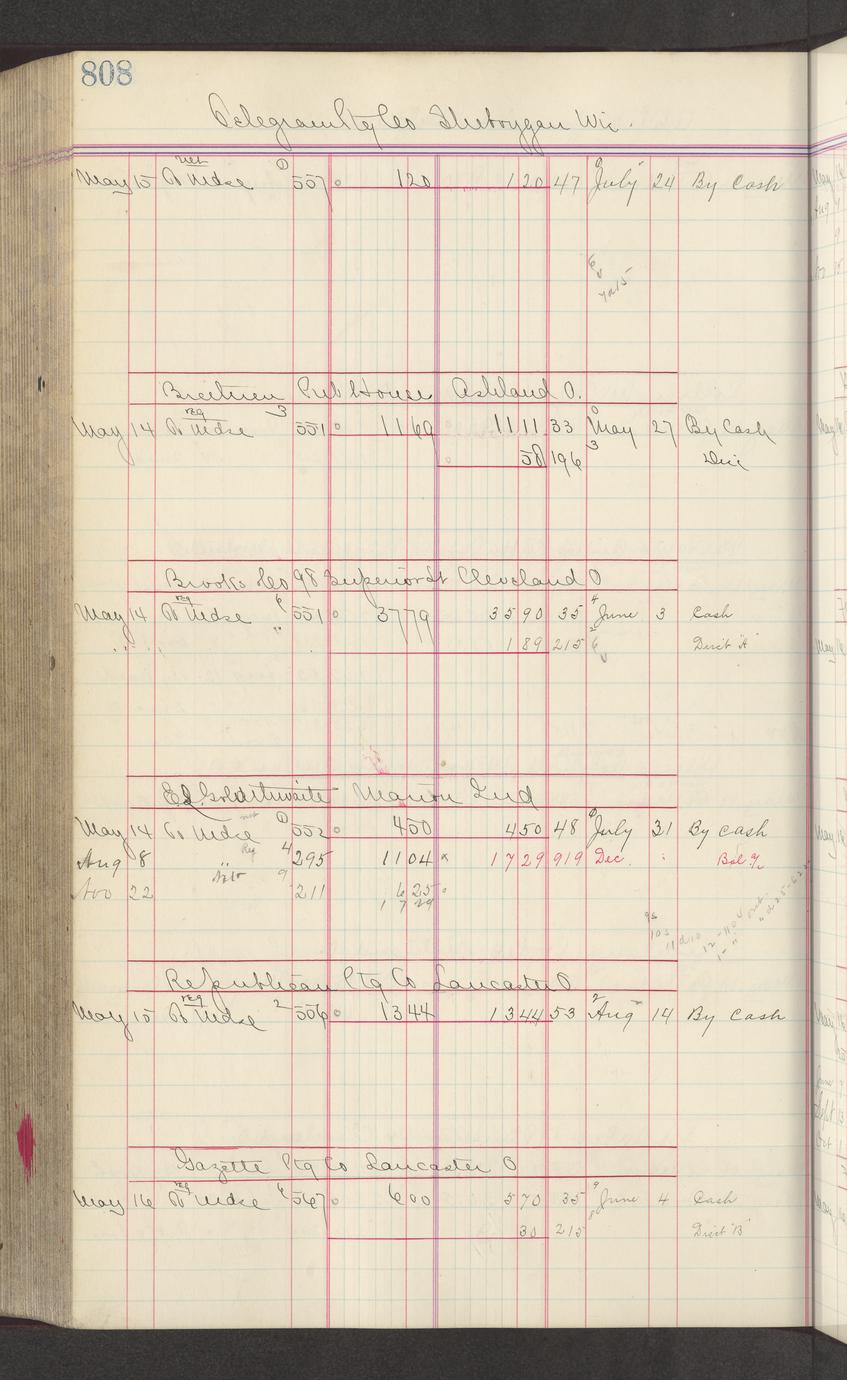 808
Telegram Ptg Co Sheboygan Wis.
net
May 15 To Mdse 1 557 120 120 47 July 24 By Cash
Brethren Pub House Ashland O.
reg
May 14 To Mdse 3 551 1169 11 11 33 May 27 By Cash
58 196 Disc
Brooks Co 98 Superior St Cleveland O
reg
May 14 To Mdse 6 551 3779 35 90 35 June 3 Cash
1 89 215 Disct "A"
Ed Goldthwaite Marion Ind
net
May 14 To Mdse 1 552 450 4 50 48 July 31 By Cash
Aug 8 " Reg 4 295 11 04 x 17 29 919 Dec. Bal %
Nov 22 9 211 6 25
17 29
Republican Ptg Co Lancaster O
reg
May 15 To Mdse 2 556 1344 13 44 53 Aug 14 By Cash
Gazette Ptg Co Lancaster O
reg
May 16 To Mdse 6 567 600 5 70 35 June 4 Cash
30 215 Disct "B"